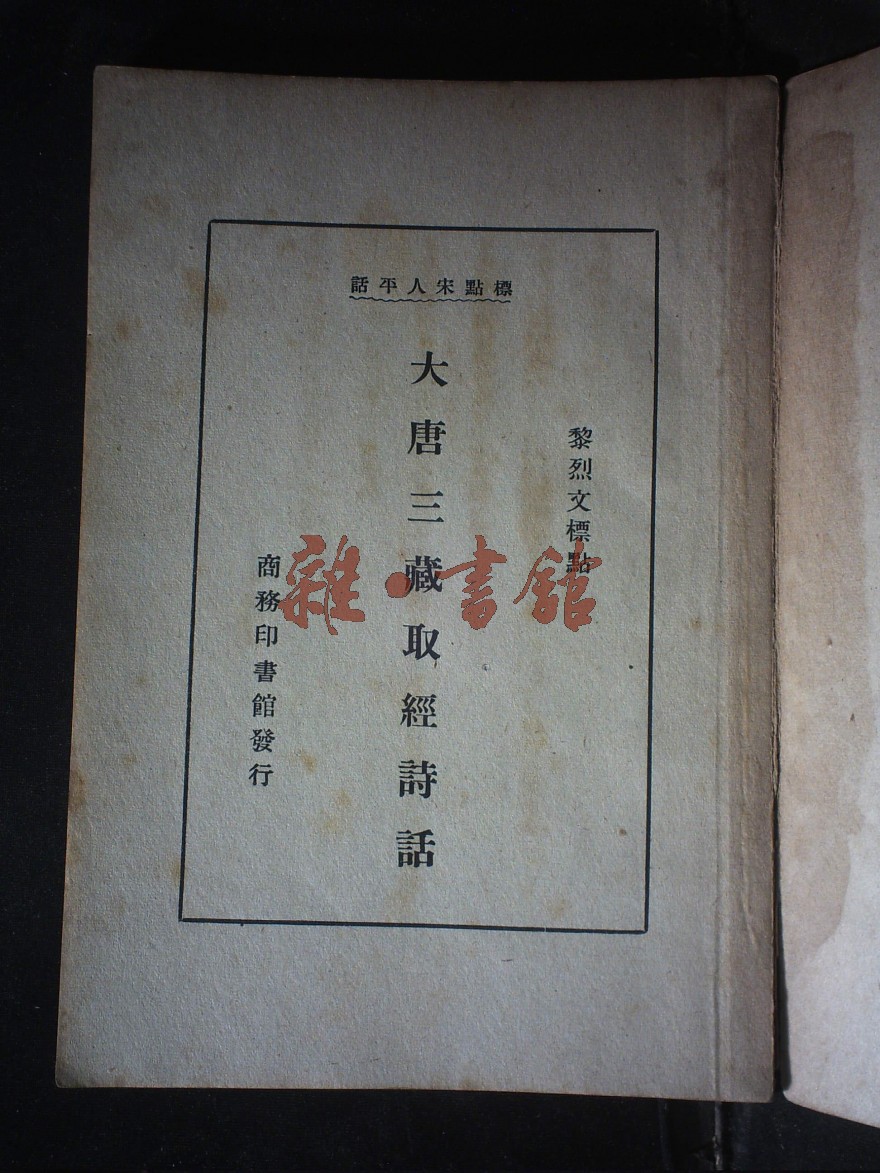 標點宋人平話
黎烈文標點
大唐三藏取經詩話
商務印書館發行
雜·書館